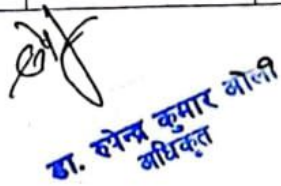 डा. रुपेन्द्र कुमार ओली
अधिकृत